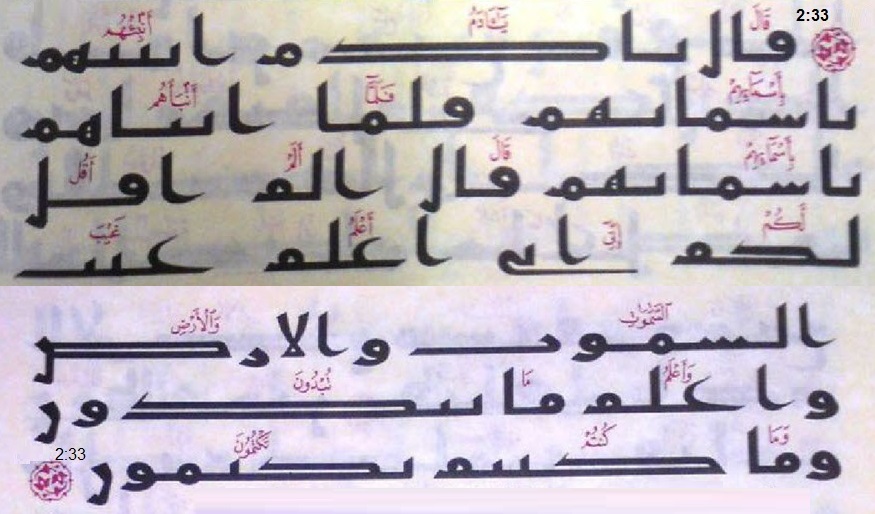 2:33
قَالَ يَـٰٓـَٔادَمُ أَنۢبِئْهُم
قال يادم انبيهم
بِأَسْمَآئِهِمْ فَلَمَّآ أَنۢبَأَهُم
باسمايهم فلما انباهم
بِأَسْمَآئِهِمْ قَالَ أَلَمْ أَقُل
باسمايهم قال الم اقل
لَّكُمْ إِنِّىٓ أَعْلَمُ غَيْبَ
لكم انى اعلم غيب
ٱلسَّمَـٰوَٰتِ وَٱلْأَرْضِ
السموت والارض
وَأَعْلَمُ مَا تُبْدُونَ
واعلم ما تبدون
وَمَا كُنتُمْ تَكْتُمُونَ
وما كنتم تكتمون
2:33